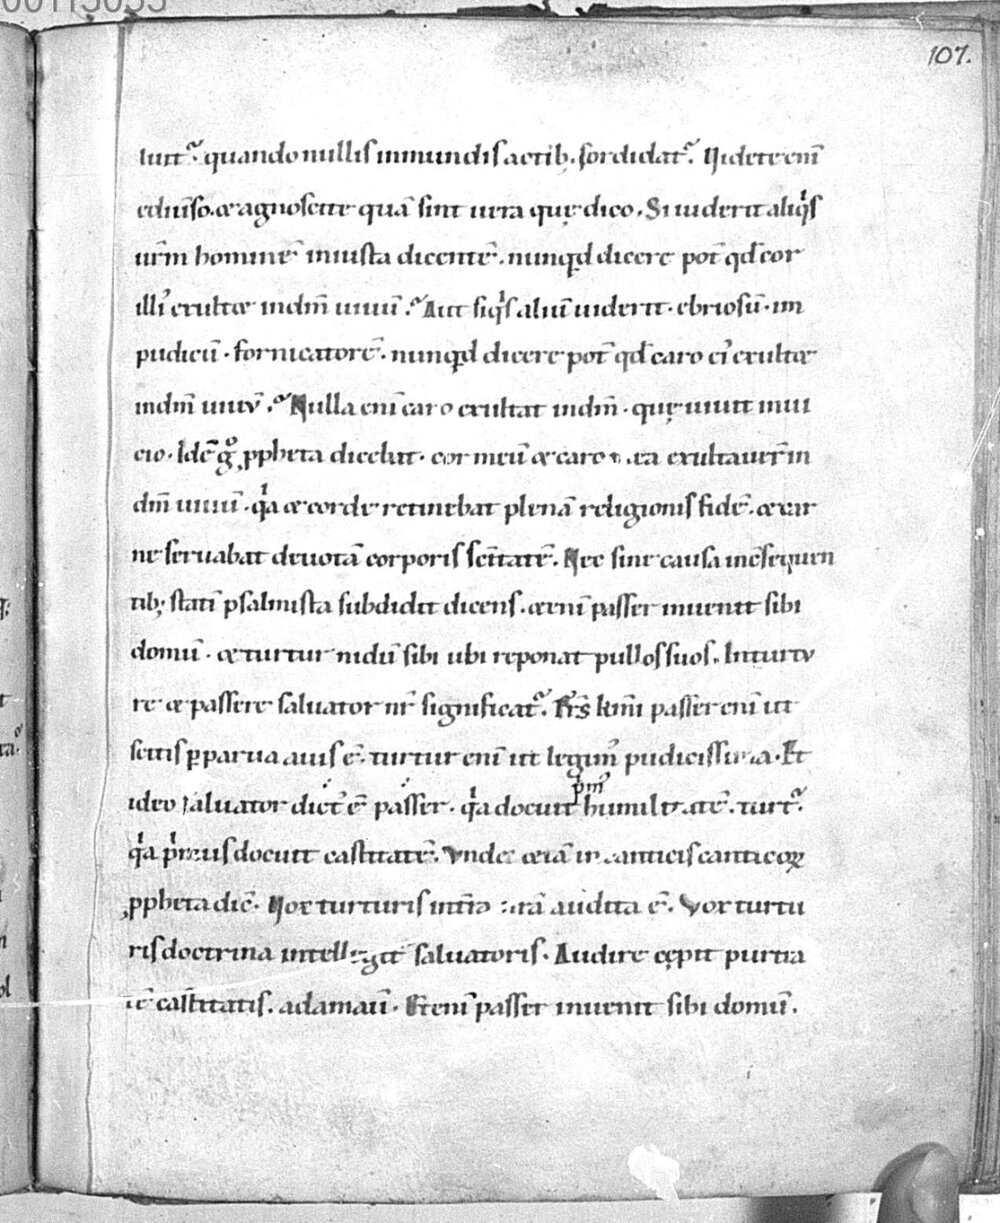 00115055
107.
iuit᷑· quando nullis inmundis actib; sordidat᷑. Uidete enī
ediuıso. & agnoscite quā sint uera quę dico. Si uiderit aliq̇s
ur̄m hominē iniusta dicentē. nunqđ dicere pot̄ qđ cor
illi᷒ exultæ indm̄ uiuū.᷑ Aut siq̇s aliū uiderit. ebriosū. im
pudicū. fornicatorē. nunqđ dicere pot̄ qđ caro ei᷒ exultæ
indm̄ uiuū.᷑ Nulla enī caro exultat indm̄. quę uiuit inui
cio. Idē gͦ ꝓpheta dicebat. cor meū & caro exultauer̄ in
dm̄ uiuū. qͣa & corde retinebat plenā religionis fidē. & car
ne seruabat deuotā corporis scītatē. Nec sine causa incsequen
tib; statī psalmista subdidit dicens. & enī passer inuenit sibi
domū. & turtur nidū sibi ubi reponat pullos suos. Inturtu
re & passere saluator nr̄ significat᷑. Fr̄s km̄i passer enī ut
scitis ꝑparua auis ē. turtur enī ut legim᷒ pudicissima. Et
pm᷒
ideo saluator dict᷒ ē passer. qͣa docuit humilitatē. turt᷑.
qͣa docuit castitatē. Unde & iā in canticis canticoꝝ
ꝓpheta dic̄. Uox turturis audita ē. Vox turtu
ris doctrina intellegit saluatoris. Audire cępit
castitatis. adamaū. Et enī passer inuenit sibi domū.